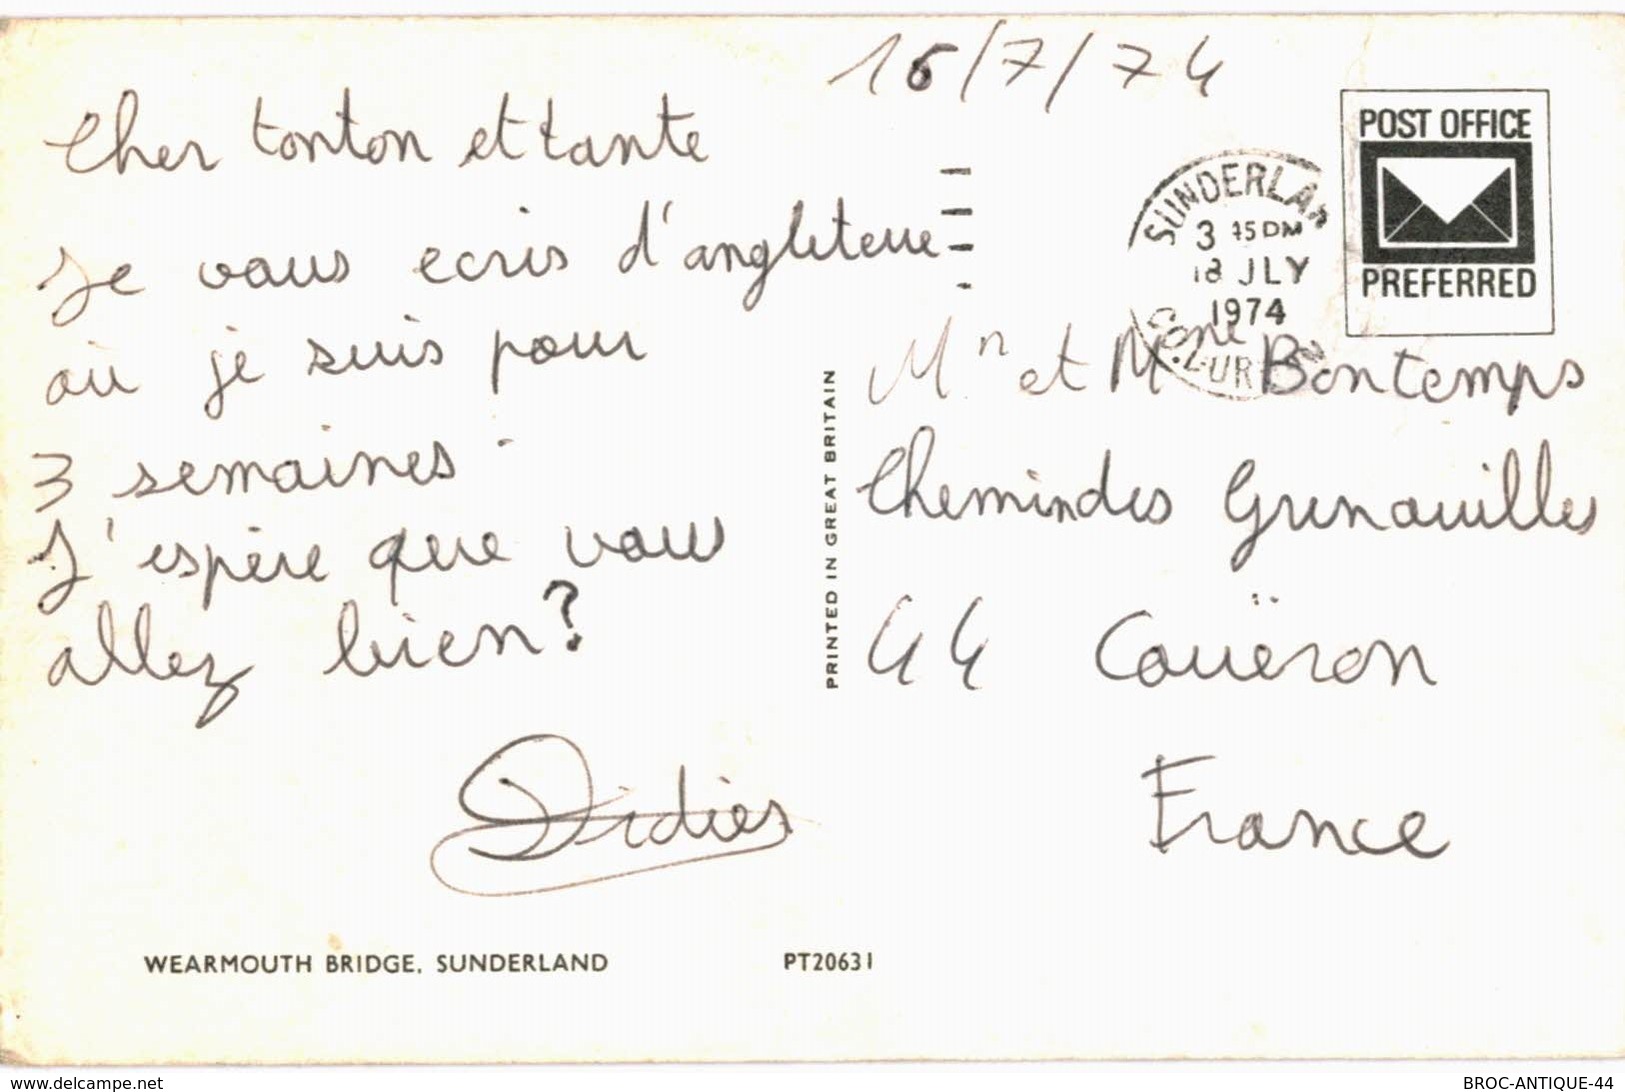 16/7/74
Cher tonton et tante
Je vous ecris d'angleterre
où je suis pour
3 semaines.
J'espère que vous
allez bien ?
Didier
POST OFFICE
PREFERRED
SUNDERLAN
3 45 PM
18 JLY
1974
Mr et Mme Bontemps
Chemin des Grenouilles
44 Couëron
France
PRINTED IN GREAT BRITAIN
WEARMOUTH BRIDGE, SUNDERLAND
PT20631
www.delcampe.net
BROC-ANTIQUE-44